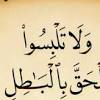 وَلَا تَلْبِسُوا۟
لْحَقَّ بِٱلْبَٰطِلِ